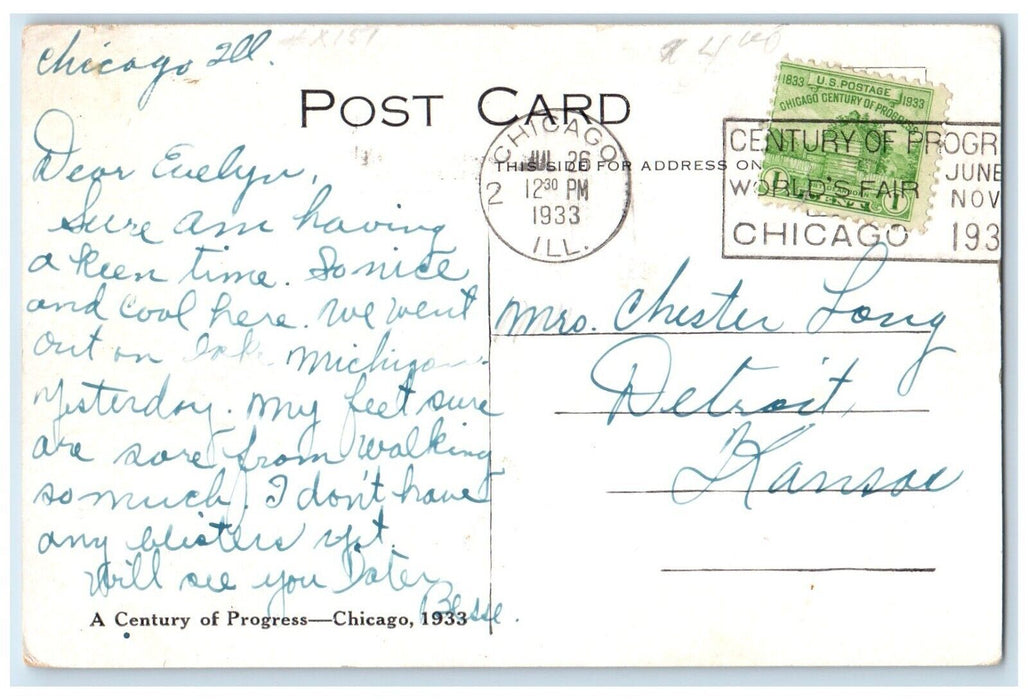 Chicago Ill.
POST CARD
THIS SIDE FOR ADDRESS ON
CHICAGO
JUL 26
12 30 PM
1933
2
ILL.
1833 U.S. POSTAGE 1933
CHICAGO CENTURY OF PROGRESS
1 CENT 1
CENTURY OF PROGR
JUNE
WORLD'S FAIR NOV
CHICAGO 193
Dear Evelyn,
Sure am having
a keen time. So nice
and cool here. We went
out on Lake Michigan
yesterday. My feet sure
are sore from walking
so much. I don't have
any blisters yet.
Will see you Later
Besse.
Mrs. Chester Long
Detroit,
Kansas
A Century of Progress—Chicago, 1933